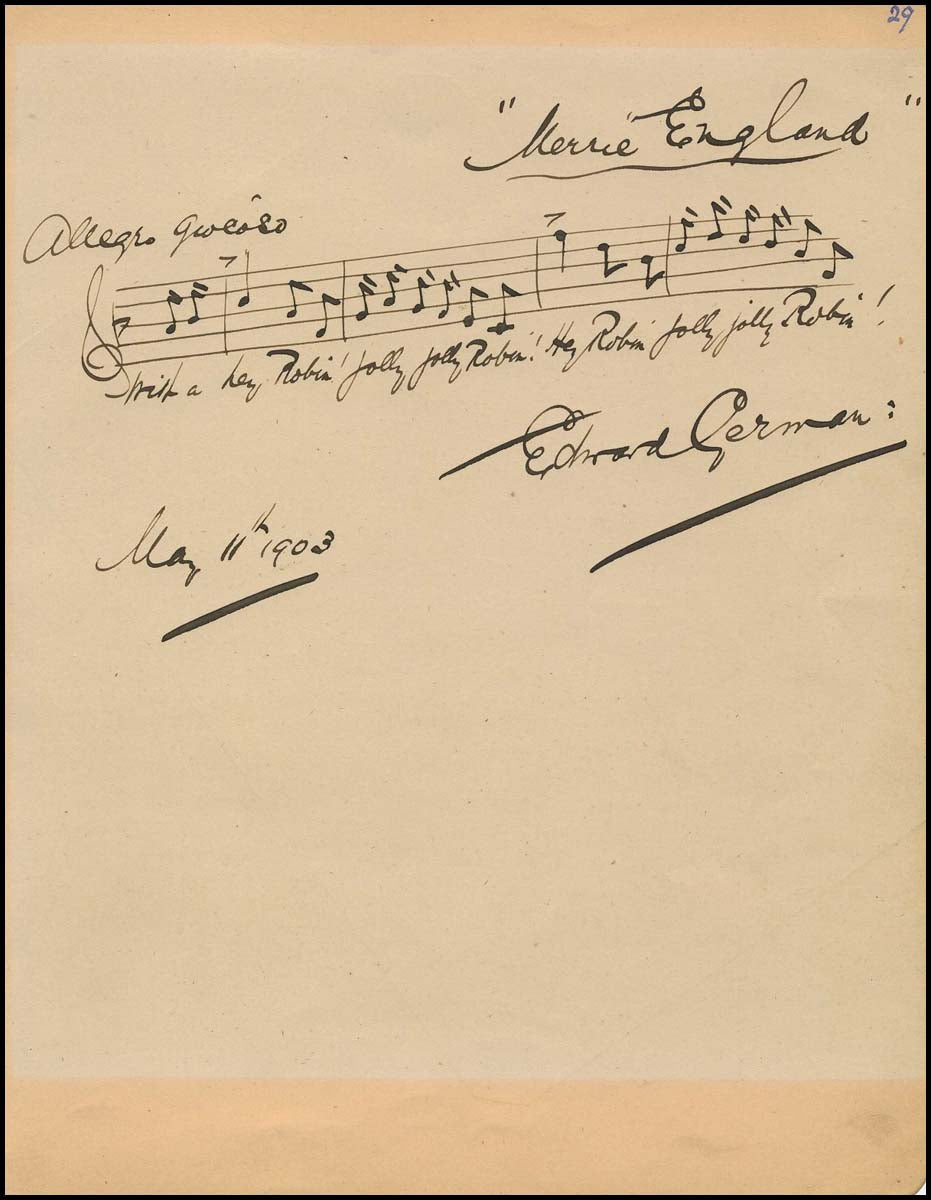 29
"Merrie England"
Allegro giocoso
With a hey, Robin! Jolly jolly Robin! Hey Robin jolly jolly Robin!
Edward German:
May 11th 1903